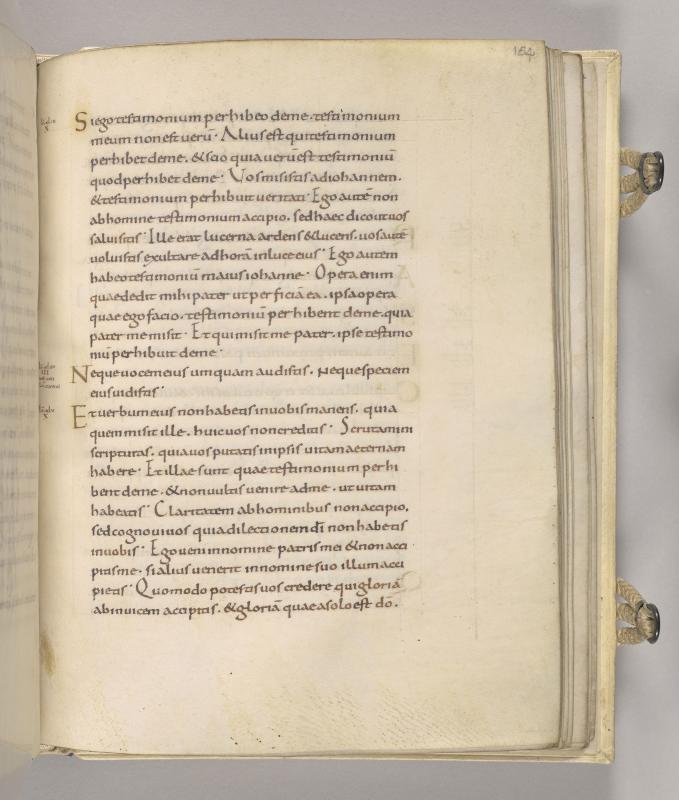 164
Si ego testimonium perhibeo deme · testimonium
meum non est uerū · Alius est qui testimonium
perhibet deme · & scio quia uerū est testimoniū
quod perhibet deme · Vos misistis ad iohannem ·
& testimonium perhibuit ueritati · Ego autē non
ab homine testimonium accipio · sed haec dico ut uos
salui sitis · Ille erat lucerna ardens & lucens · uos autē
uoluistis exultare ad horā in luce eius · Ego autem
habeo testimoniū maius iohanne · Opera enim
quae dedit mihi pater ut perficiā ea · ipsa opera
quae ego facio · testimoniū perhibent deme · quia
pater me misit · Et qui misit me pater · ipse testimo
niū perhibuit deme ·
Neque uocem eius umquam audistis · Neque speciem
eius uidistis ·
Et uerbum eius non habetis in uobis manens · quia
quem misit ille · huic uos non creditis · Scrutamini
scripturas · quia uos putatis in ipsis uitam aeternam
habere · Et illae sunt quae testimonium perhi
bent deme · & non uultis uenire ad me · ut uitam
habeatis · Claritatem ab hominibus non accipio ·
sed cognoui uos quia dilectionem dī non habetis
in uobis · Ego ueni in nomine patris mei & non acci
pitis me · si alius uenerit in nomine suo illum acci
pietis · Quomodo potestis uos credere qui gloriā
ab inuicem accipitis · & gloriā quae a solo est dō ·